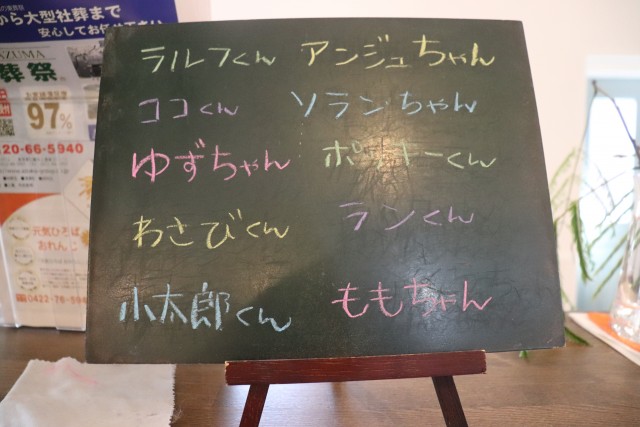 ラルフくん アンジュちゃん
ココくん ソランちゃん
ゆずちゃん ポッキーくん
わさびくん ランくん
小太郎くん ももちゃん
から大型社葬まで
安心してお任せ下さい
葬祭
97%
20-66-5940
元気ひろば
おれんじ
0422-76-594